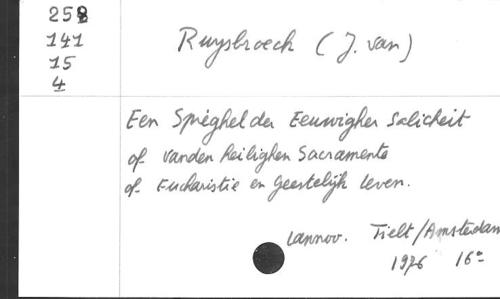 258
141
15
4
Ruysbroeck (J. van)
Een Spieghel der Eeuwigher Salicheit
of vanden heilighen Sacramente
of Eucharistie en geestelijk leven.
Lannoo. Tielt/Amsterdam
1976 16°